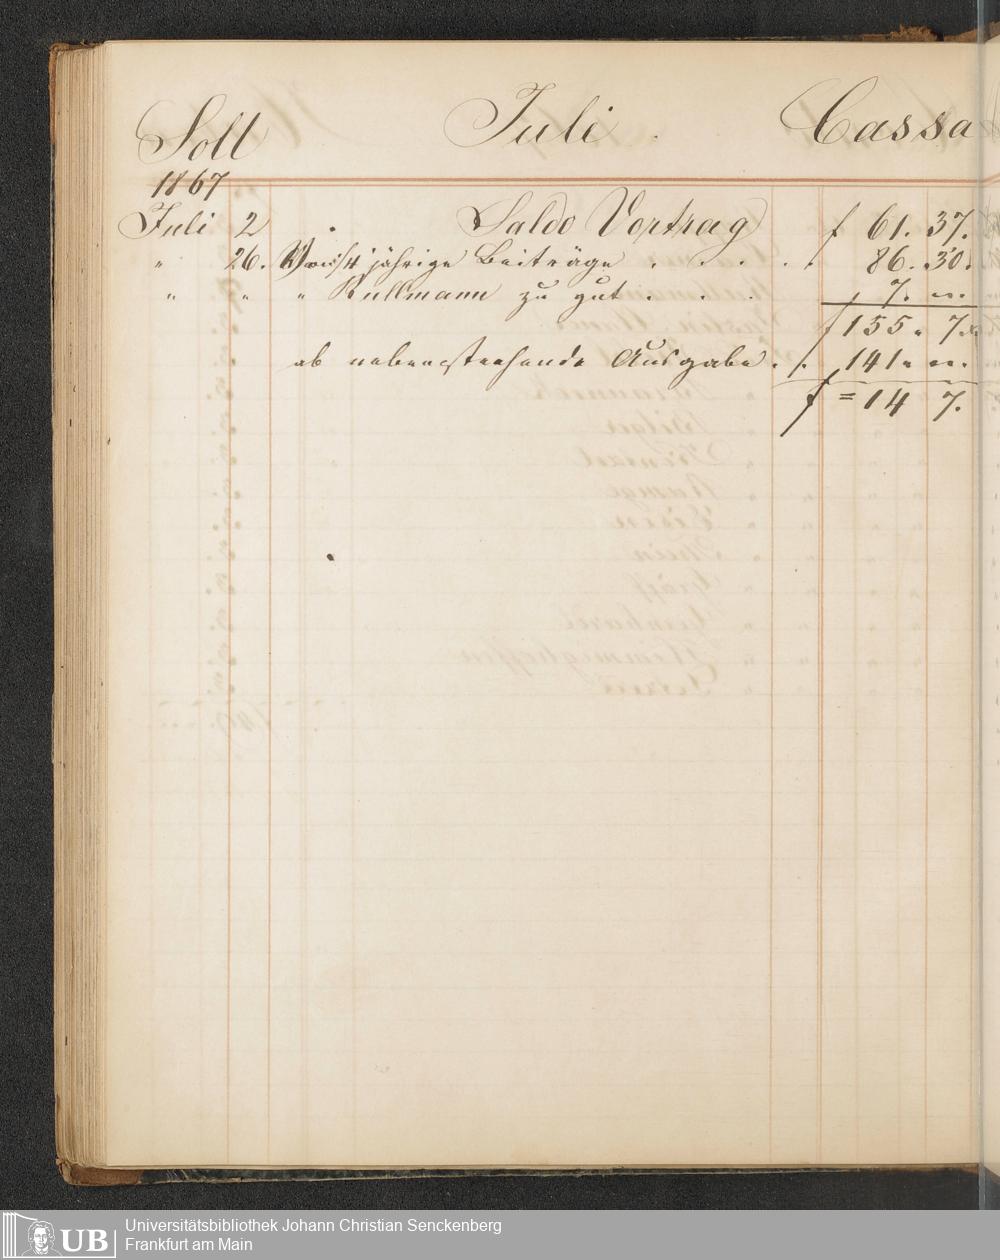 Soll Juli Cassa
1867
Juli 2 Saldo Vortrag f 61. 37.
" 26. 1/4 jährige Beiträge . . . . . 86. 30.
" " " Rullmann zu gut . . . 7. "
f 155. 7.
ab nebenstehende Ausgabe . . 141. "
f = 14 7.
UB Universitätsbibliothek Johann Christian Senckenberg
Frankfurt am Main